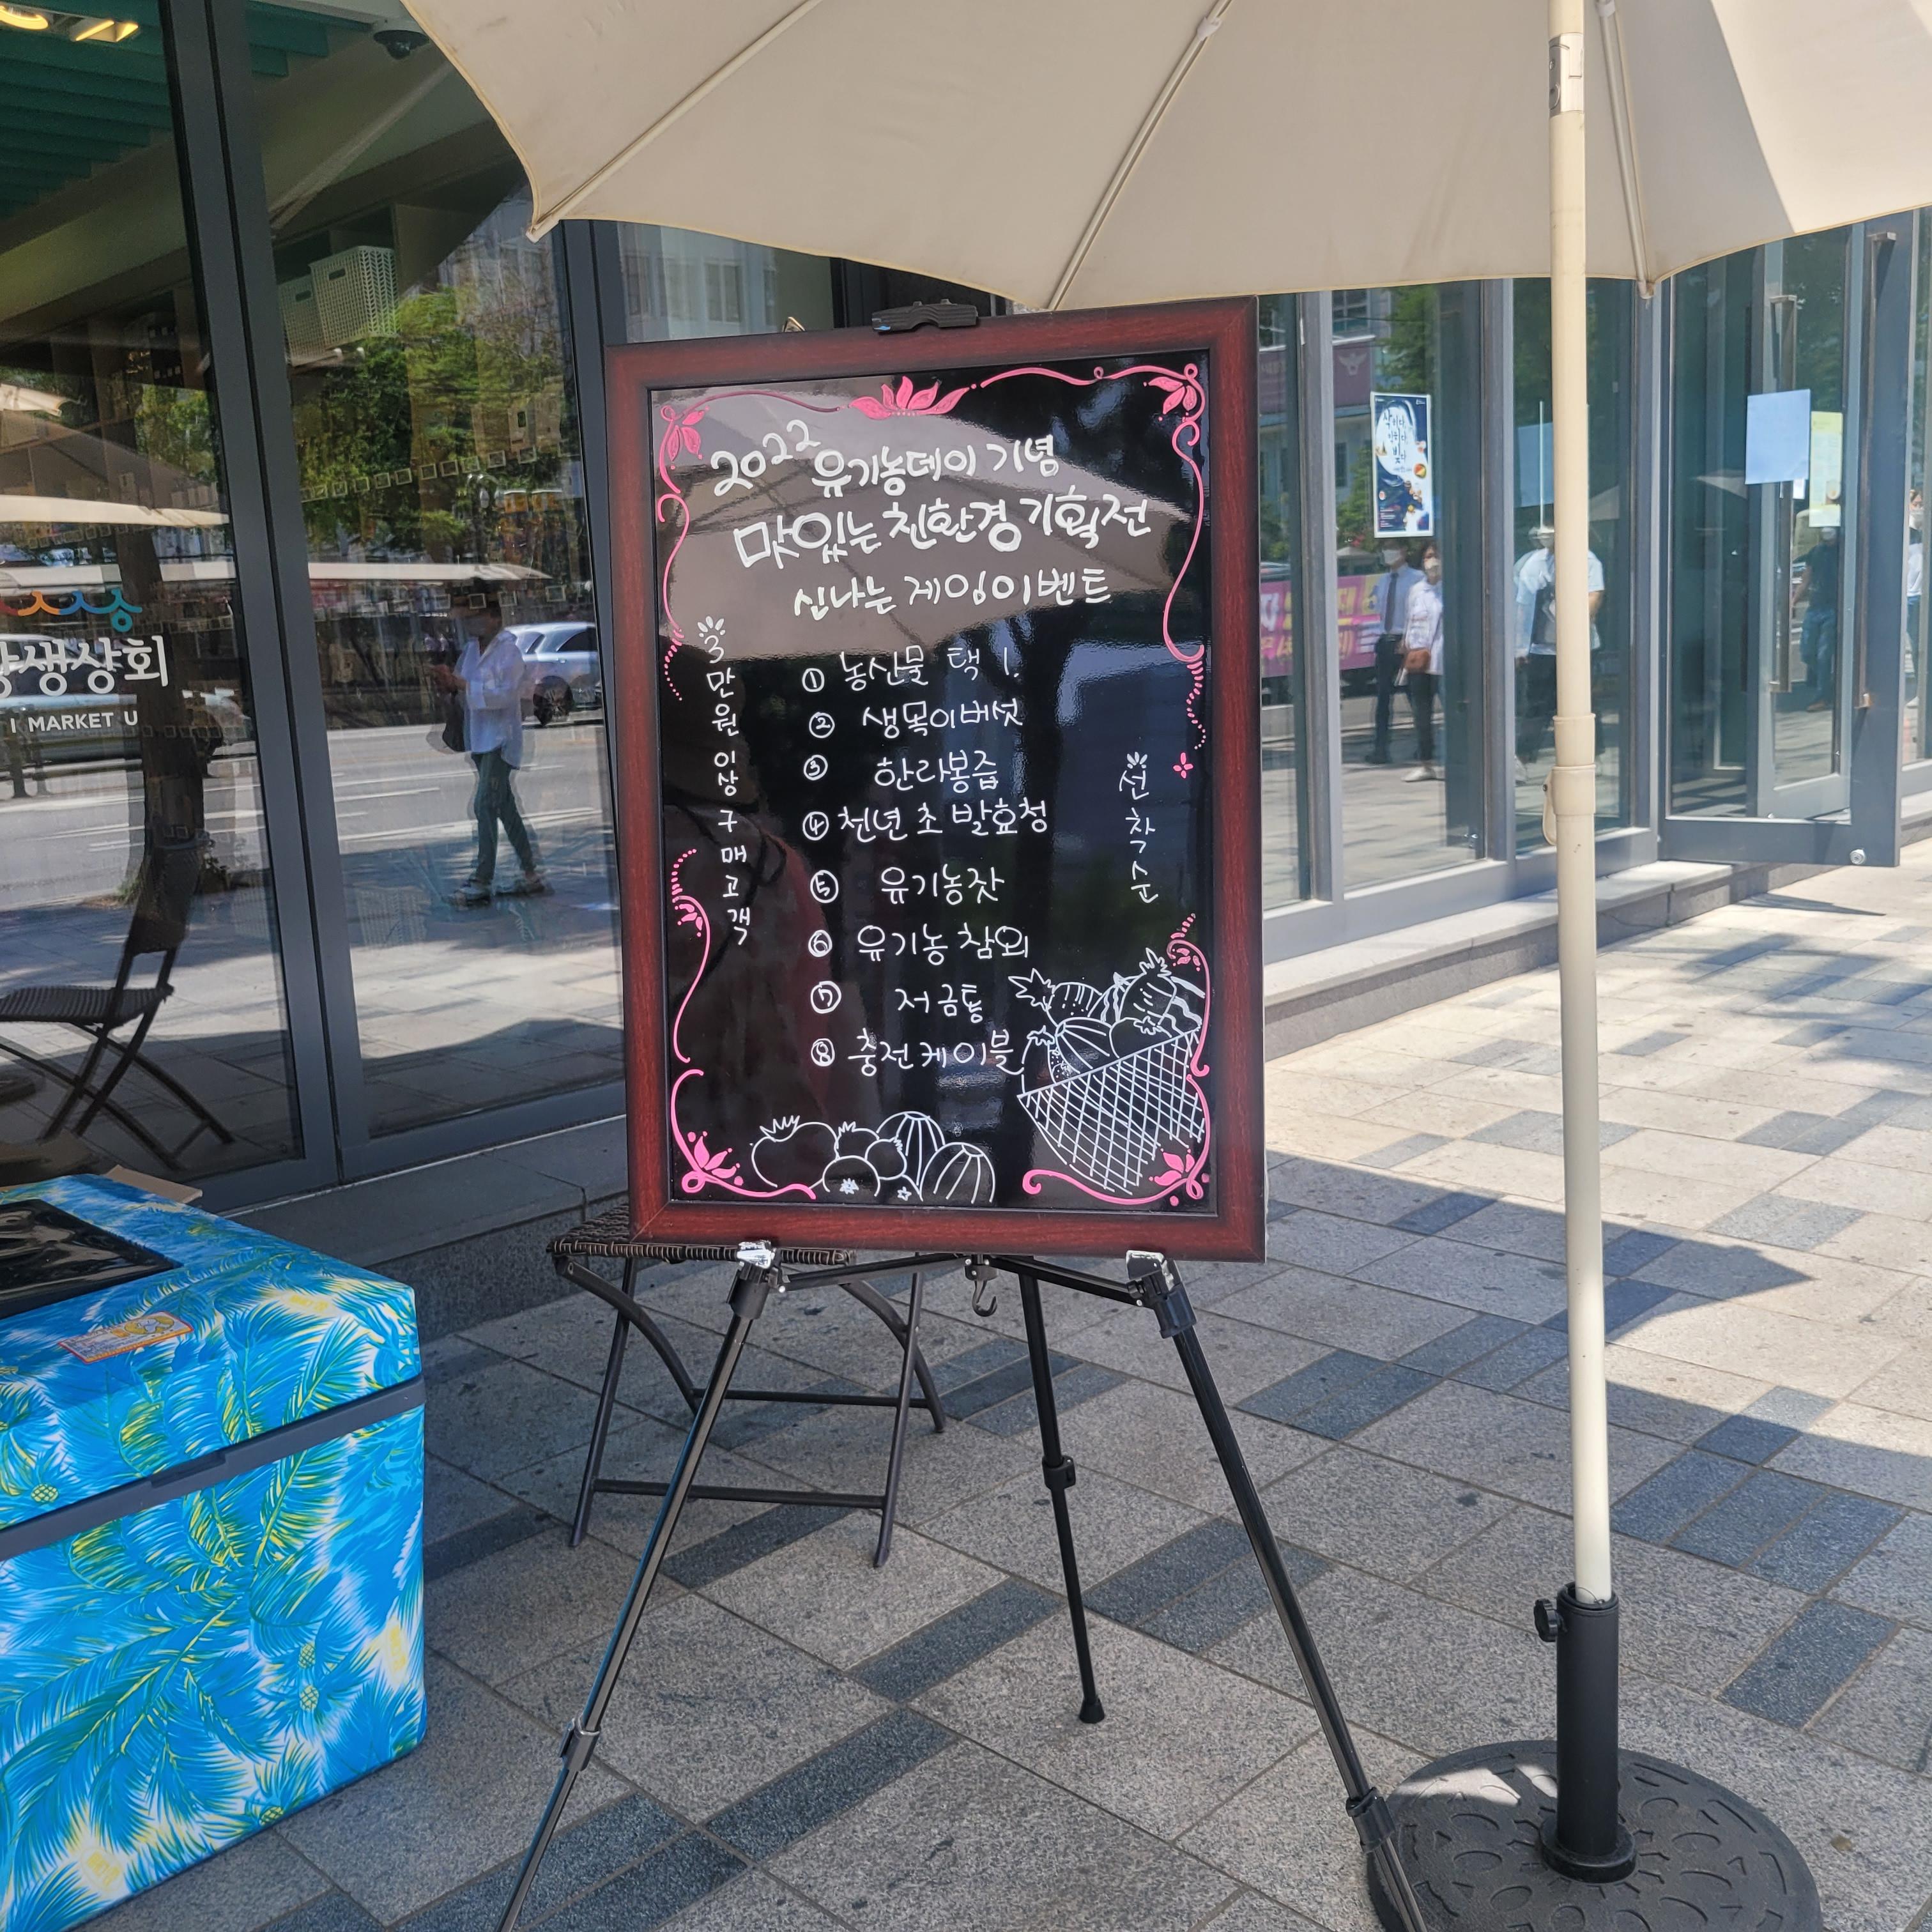 2022 유기농데이 기념
맛있는 친환경 기획전
신나는 게임이벤트
3만원 이상 구매고객
① 농산물 택 1.
② 생목이버섯
③ 한라봉즙
④ 천년초 발효청
⑤ 유기농잣
⑥ 유기농 참외
⑦ 저금통
⑧ 충전케이블
선착순
생상회
I MARKET U